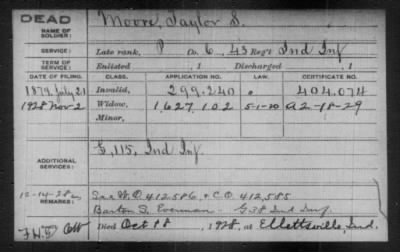 DEAD
NAME OF SOLDIER:
Moore, Taylor S.
SERVICE:
Late rank, P Co. C, 43 Reg't Ind Inf
TERM OF SERVICE:
Enlisted , 1 Discharged , 1
DATE OF FILING. CLASS. APPLICATION NO. LAW. CERTIFICATE NO.
1879 July 21 Invalid, 299.240 404.074
1928 Nov 2 Widow, 1,627,102 5-1-20 A2-18-29
Minor,
ADDITIONAL SERVICES:
E, 115, Ind Inf
REMARKS:
12-14-28
See W.O. 412,586, & C.O. 412,585
Barton S. Everman - G 38 Ind Inf.
Died Oct 18, 1928, at Ellettsville, Ind.